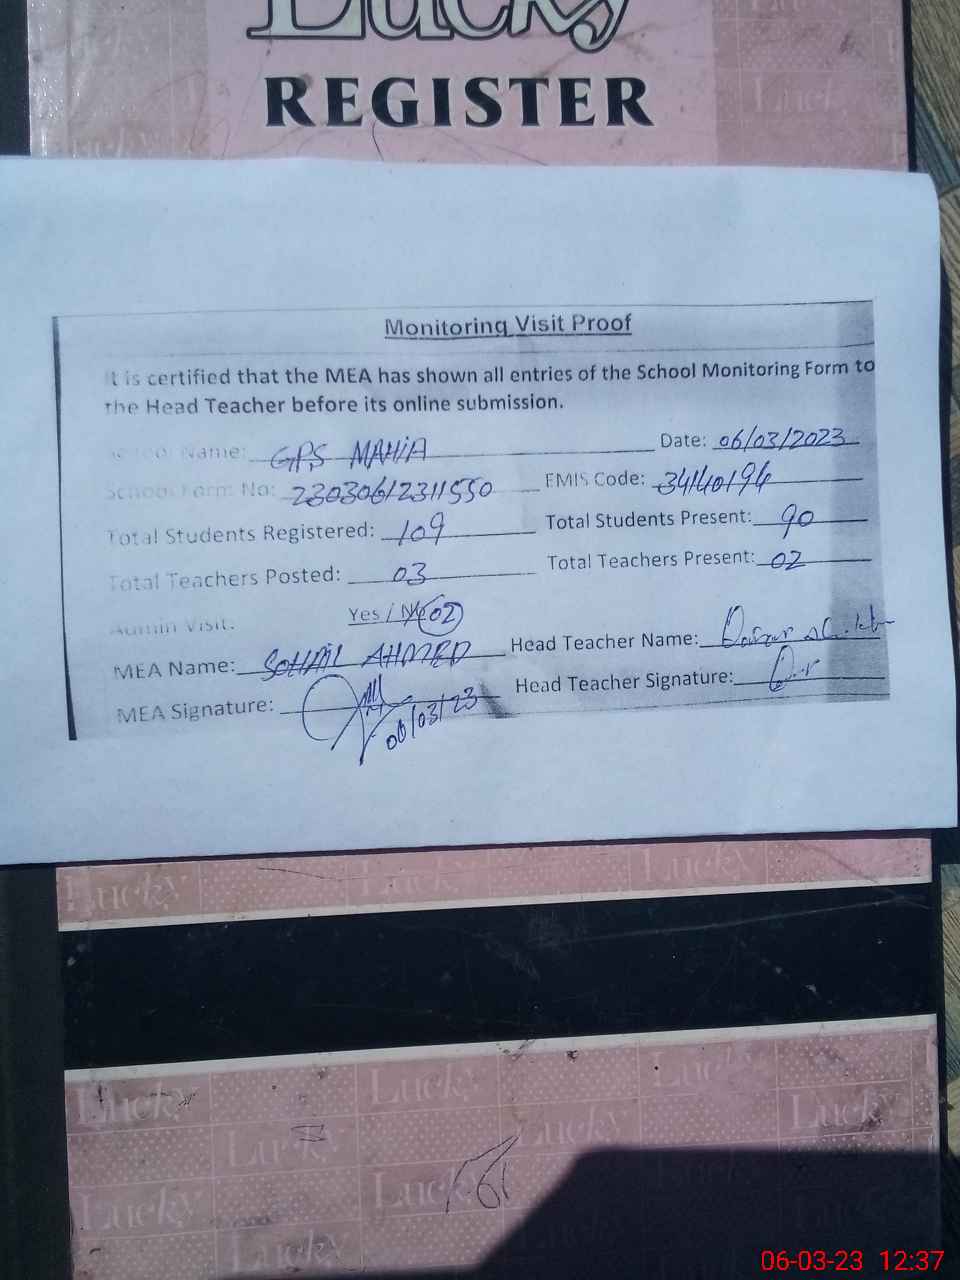 Lucky
REGISTER
Monitoring Visit Proof
It is certified that the MEA has shown all entries of the School Monitoring Form to
the Head Teacher before its online submission.
School Name: GPS MAHIA Date: 06/03/2023
School Form No: 23030612311550 EMIS Code: 34140194
Total Students Registered: 109 Total Students Present: 90
Total Teachers Posted: 03 Total Teachers Present: 02
Admin Visit: Yes / No 02
MEA Name: SOHAIL AHMED Head Teacher Name:
MEA Signature: 06/03/23 Head Teacher Signature:
Lucky Lucky Lucky
Lucky Lucky Lucky
Lucky Lucky
Lucky Lucky
Lucky
06-03-23 12:37